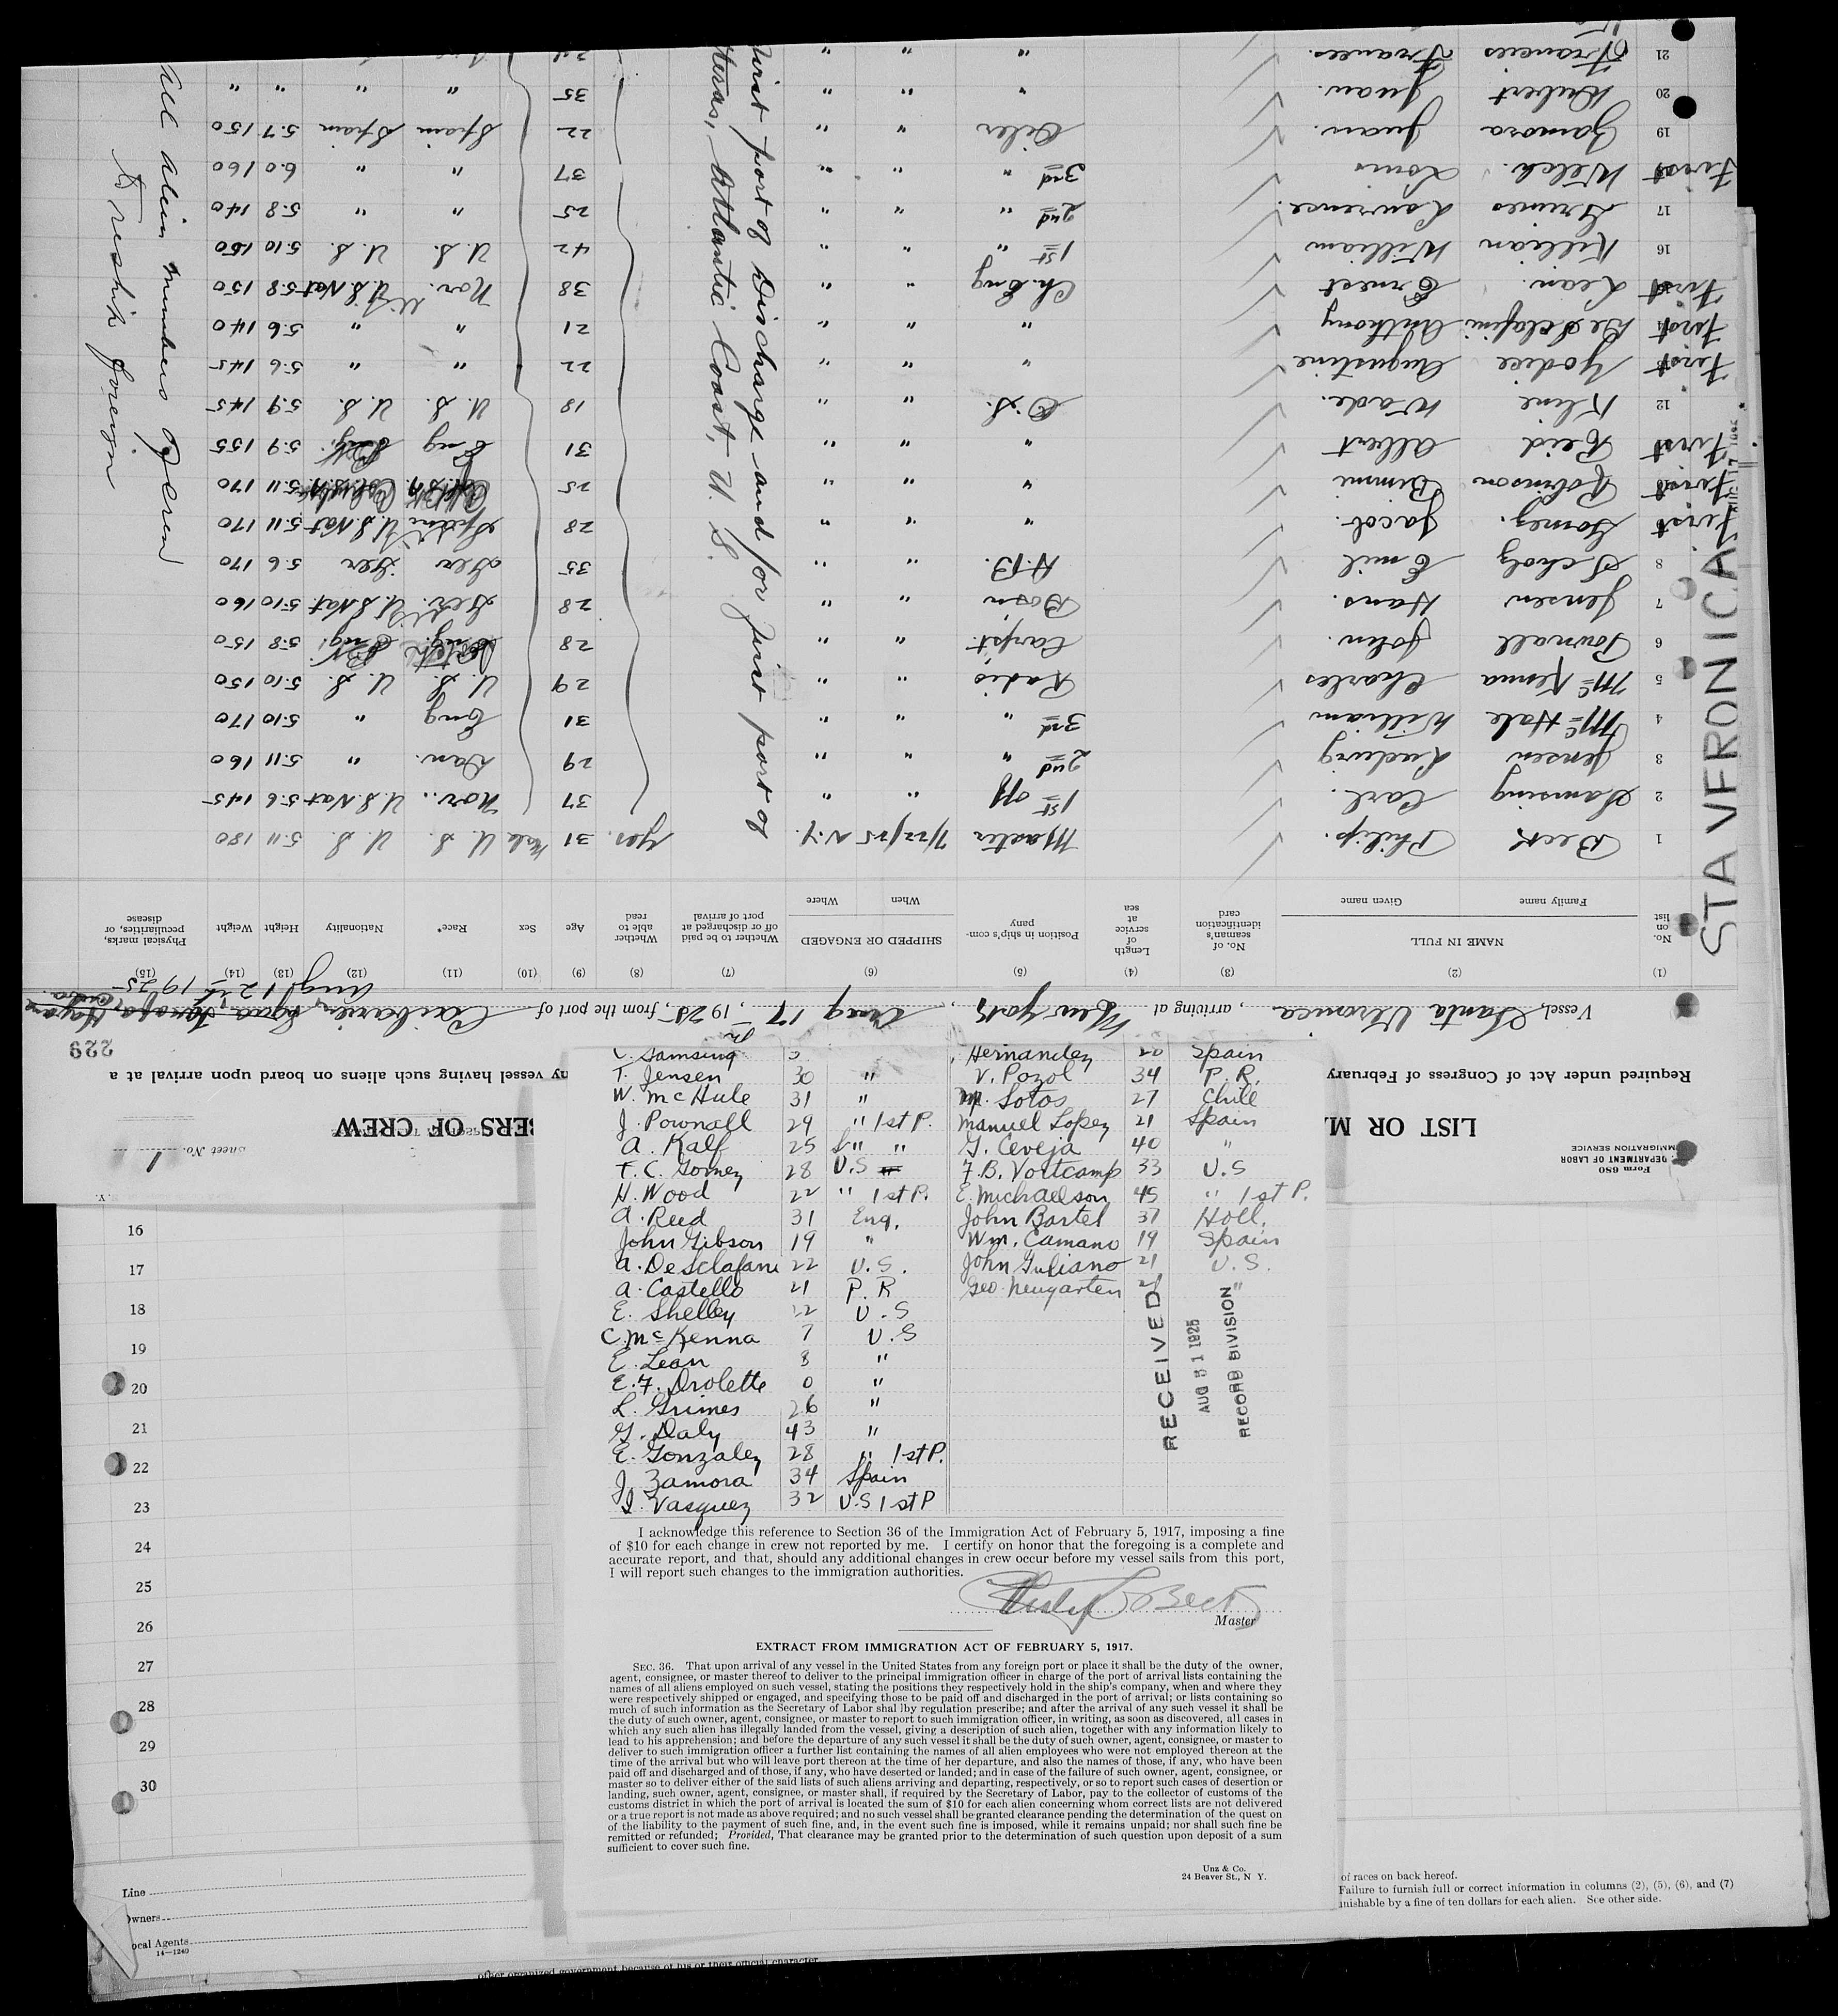 Form 680
DEPARTMENT OF LABOR
IMMIGRATION SERVICE
LIST OR M
BERS OF CREW
Sheet No. 1
Required under Act of Congress of February
ny vessel having such aliens on board upon arrival at a
229
Vessel, Santa Veronica, arriving at New York, Aug 17, 1925, from the port of Caibarien,
Aug 12th 1925
STA VERONICA
(1) (2) (3) (4) (5) (6) (7) (8) (9) (10) (11) (12) (13) (14) (15)
No. on list
NAME IN FULL
Family name Given name
No. of seaman's identification card
Length of service at sea
Position in ship's company
SHIPPED OR ENGAGED
When Where
Whether to be paid off or discharged at port of arrival
Whether able to read
Age
Sex
Race*
Nationality
Height
Weight
Physical marks, peculiarities, or disease
1 Beck Philip. Master 7/22/25 N.Y. Yes. 31 Male U.S. U.S. 5.11 180
2 Samsing Carl. 1st Off " " 37 Nor. U.S. Nat 5.6 145
3 Jensen Ludwig 2nd " " " 29 Dan. " 5.11 160
4 McHale William 3rd " " " 31 Eng " 5.10 170
5 McKenna Charles Radio " " 29 U.S. U.S. 5.10 150
6 Pownall John. Carpt. " " 28 Eng. 5.8 150
7 Jensen Hans. Bosn " " 28 Ger. U.S. Nat. 5.10 160
8 Scholz Emil A.B. " " 35 Ger Ger 5.6 170
First Gomez. Jacob. " " " 28 U.S. Nat 5.11 170
First Robinson Bimmi " " " 25 5.11 170
First Reid Albert " " " 31 Eng 5.9 155
12 Kline Wade. O.S. " " 18 U.S. U.S. 5.9 145
First Yodice Augustine " " " 22 " " 5.6 145
First De Sclafini Anthony " " " 21 " " 5.6 140
First Lean. Ernest Ch. Eng " " 38 Nor. U.S. Nat 5.8 150
16 Killian William 1st " " " 42 U.S. U.S. 5.10 150
17 Grimes Lawrence. 2nd " " " 25 " " 5.8 140
First Welch. Louis 3rd " " " 37 " " 6.0 160
19 Zamora Juan. Oiler " " 22 Spain Spain 5.7 150
20 Hubert Juan. " " " 35 " " " "
21 Francies Frances. " " "
First port of Discharge and/or first port of
Hateras, Atlantic Coast, U.S.
All Alien members of crew
to reship foreign
C. Samsing 3
T. Jensen 30 "
W. McHale 31 "
J. Pownall 29 " 1st P.
A. Kalf 25 " "
T. C. Gomez 28 U.S
H. Wood 22 " 1st P.
A. Reed 31 Eng.
John Gibson 19 "
A. DeSclafani 22 U.S.
A. Castello 21 P.R
E. Shelley 22 U.S
C. McKenna 7 U.S
E. Lean 8 "
E. F. Drolette 0 "
L. Grimes 26 "
G. Daly 43 "
E. Gonzalez 28 " 1st P.
J. Zamora 34 Spain
I. Vasquez 32 U.S 1st P
Hernandez 20 Spain
V. Pozol 34 P.R.
M. Sotos 27 Chile
Manuel Lopez 21 Spain
G. Ceveja 40 "
F. B. Voltcamp 33 U.S
E. Michaelson 45 " 1st P.
John Bartel 37 Holl.
Wm. Camano 19 Spain
John Guliano 21 U.S.
Geo. Neugarten 21 "
RECEIVED
AUG 31 1925
RECORD DIVISION
I acknowledge this reference to Section 36 of the Immigration Act of February 5, 1917, imposing a fine
of $10 for each change in crew not reported by me. I certify on honor that the foregoing is a complete and
accurate report, and that, should any additional changes in crew occur before my vessel sails from this port,
I will report such changes to the immigration authorities.
Philip Beck
Master
EXTRACT FROM IMMIGRATION ACT OF FEBRUARY 5, 1917.
SEC. 36. That upon arrival of any vessel in the United States from any foreign port or place it shall be the duty of the owner,
agent, consignee, or master thereof to deliver to the principal immigration officer in charge of the port of arrival lists containing the
names of all aliens employed on such vessel, stating the positions they respectively hold in the ship's company, when and where they
were respectively shipped or engaged, and specifying those to be paid off and discharged in the port of arrival; or lists containing so
much of such information as the Secretary of Labor shal lby regulation prescribe; and after the arrival of any such vessel it shall be
the duty of such owner, agent, consignee, or master to report to such immigration officer, in writing, as soon as discovered, all cases in
which any such alien has illegally landed from the vessel, giving a description of such alien, together with any information likely to
lead to his apprehension; and before the departure of any such vessel it shall be the duty of such owner, agent, consignee, or master to
deliver to such immigration officer a further list containing the names of all alien employees who were not employed thereon at the
time of the arrival but who will leave port thereon at the time of her departure, and also the names of those, if any, who have been
paid off and discharged and of those, if any, who have deserted or landed; and in case of the failure of such owner, agent, consignee, or
master so to deliver either of the said lists of such aliens arriving and departing, respectively, or so to report such cases of desertion or
landing, such owner, agent, consignee, or master shall, if required by the Secretary of Labor, pay to the collector of customs of the
customs district in which the port of arrival is located the sum of $10 for each alien concerning whom correct lists are not delivered
or a true report is not made as above required; and no such vessel shall be granted clearance pending the determination of the quest on
of the liability to the payment of such fine, and, in the event such fine is imposed, while it remains unpaid; nor shall such fine be
remitted or refunded; Provided, That clearance may be granted prior to the determination of such question upon deposit of a sum
sufficient to cover such fine.
Unz & Co.
24 Beaver St., N Y.
16
17
18
19
20
21
22
23
24
25
26
27
28
29
30
Line
Owners
ocal Agents
14—1240
of races on back hereof.
Failure to furnish full or correct information in columns (2), (5), (6), and (7)
inishable by a fine of ten dollars for each alien. See other side.
other organized government because of his or their official character